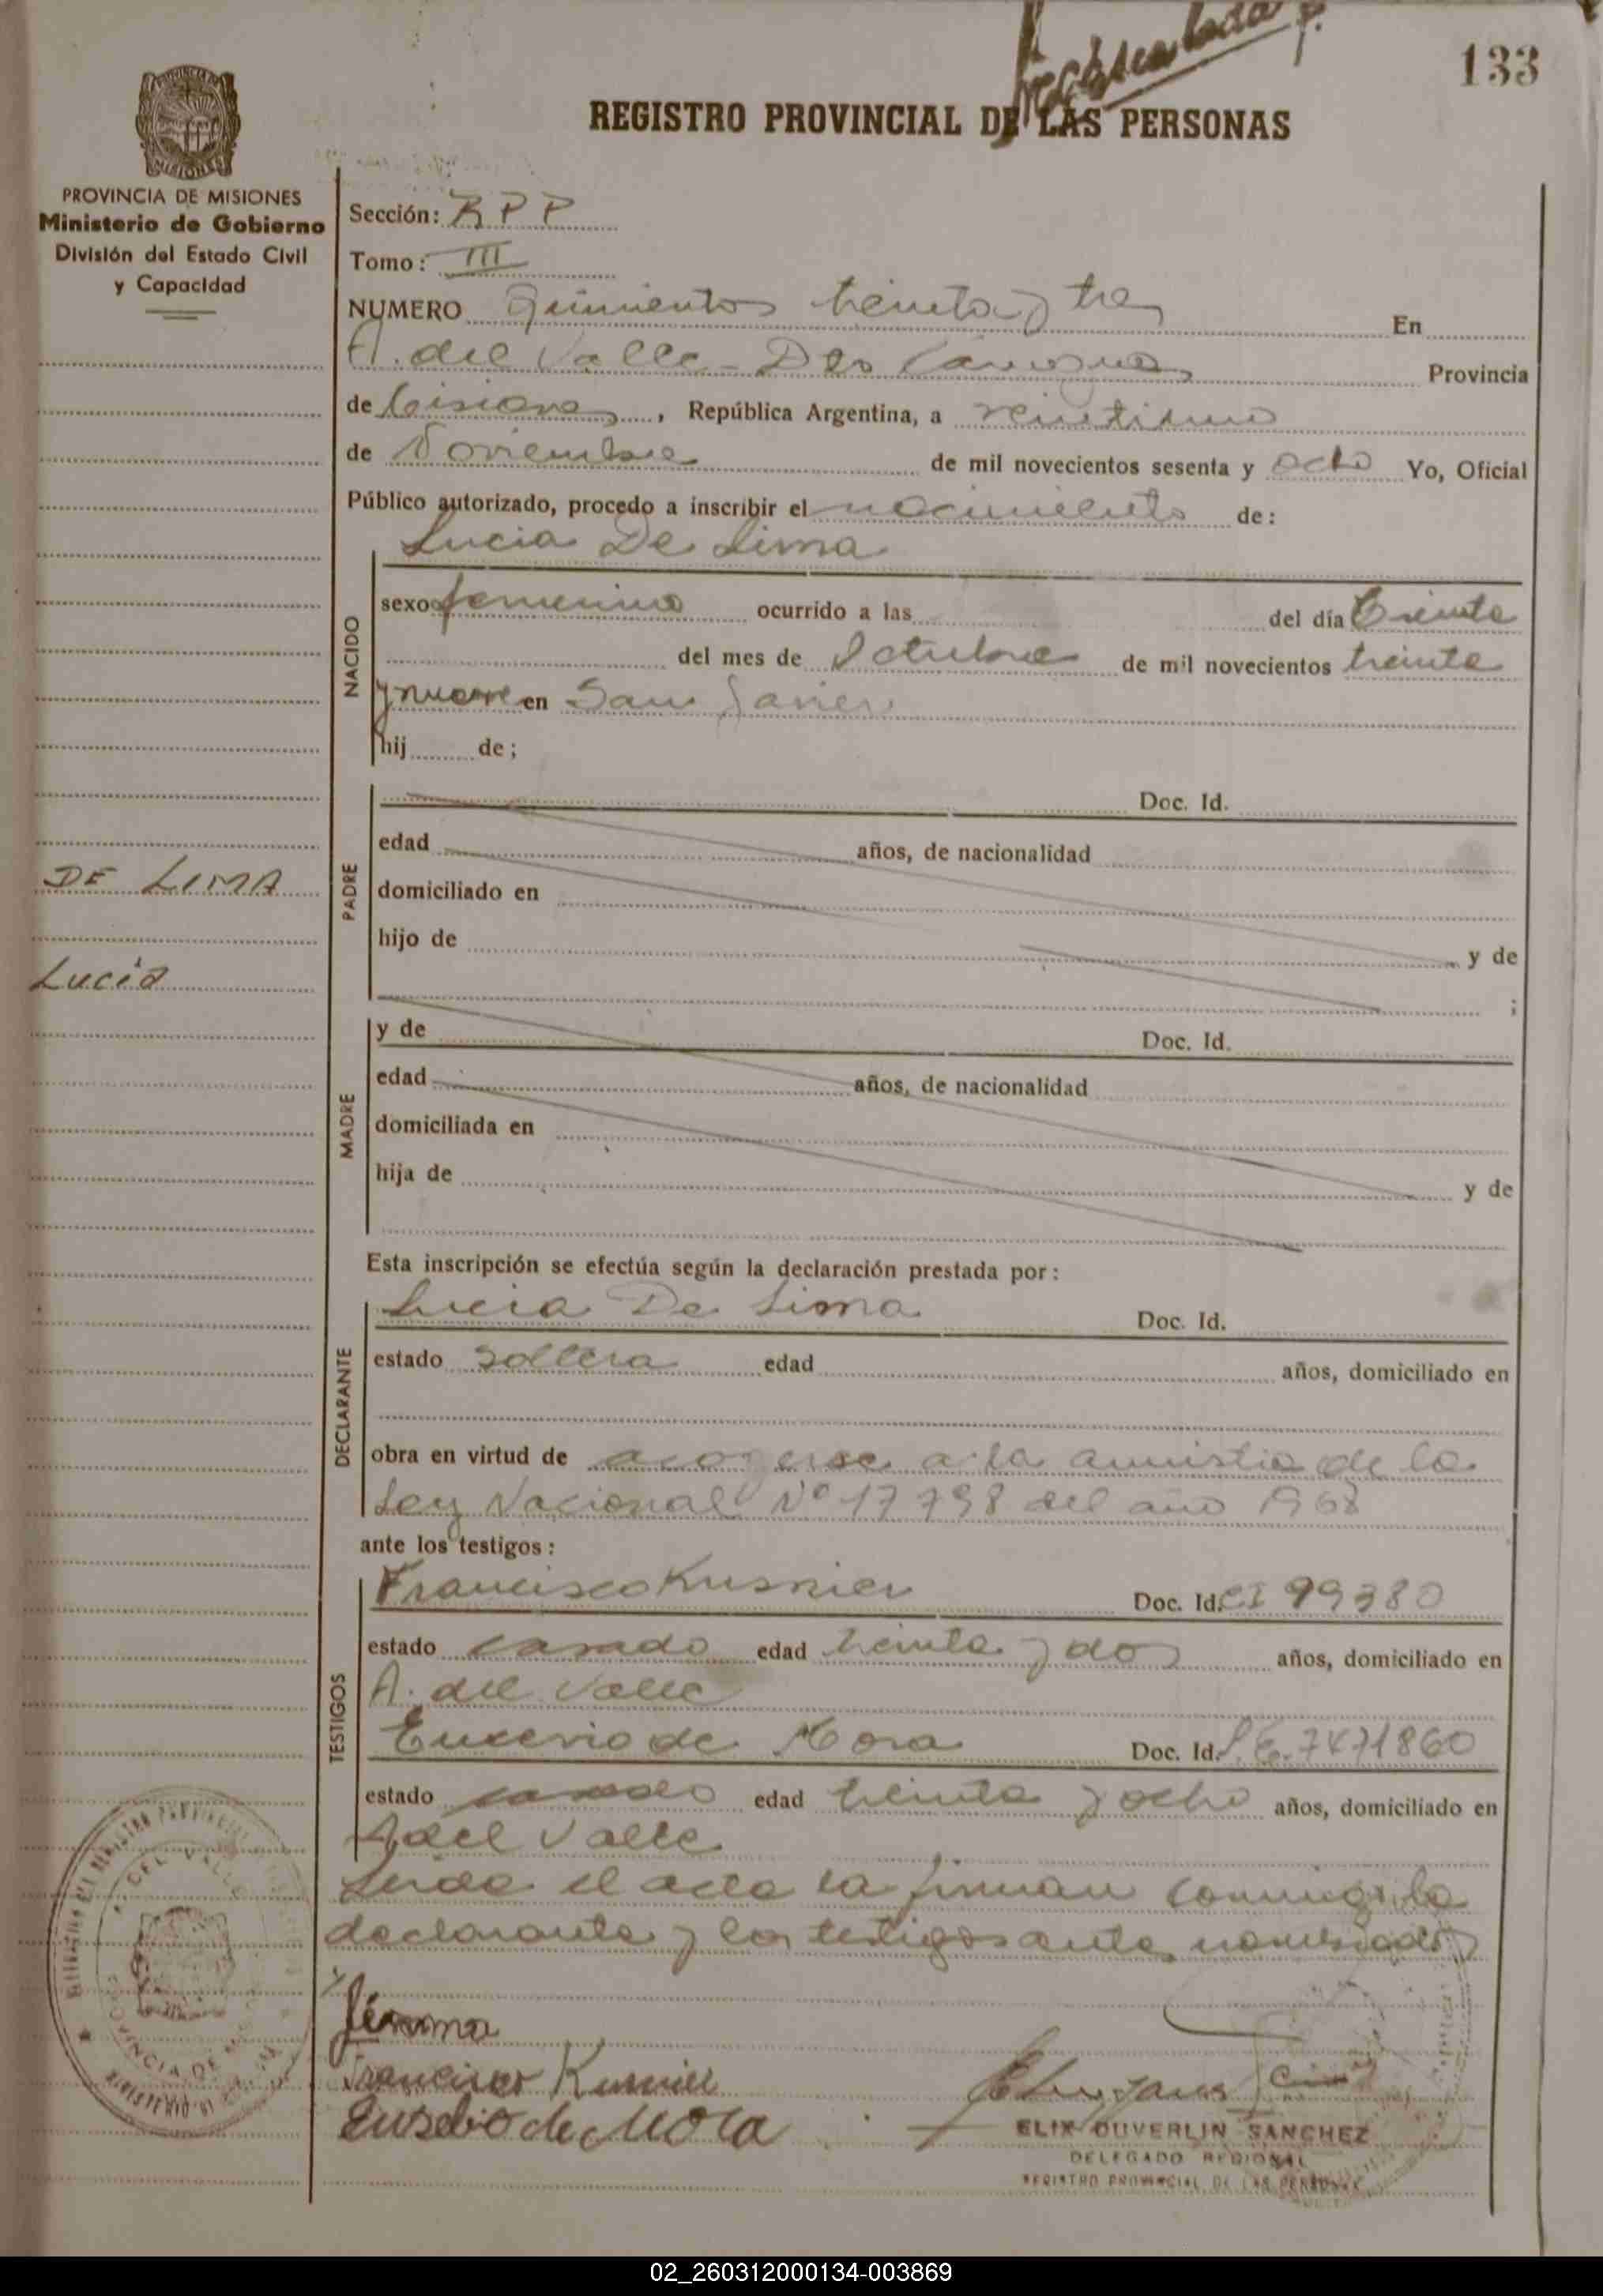 133
REGISTRO PROVINCIAL DE LAS PERSONAS
PROVINCIA DE MISIONES
Ministerio de Gobierno
División del Estado Civil
y Capacidad
Sección: RPP
Tomo: III
NUMERO Quinientos treinta y tres En
A. del Valle - Dos Provincia
de Misiones, República Argentina, a veintiuno
de Noviembre de mil novecientos sesenta y ocho Yo, Oficial
Público autorizado, procedo a inscribir el nacimiento de:
Lucia De Lima
NACIDO
sexo femenino ocurrido a las del día treinta
del mes de Octubre de mil novecientos treinta
y nueve en San Javier
hij de;
PADRE
Doc. Id.
edad años, de nacionalidad
domiciliado en
hijo de y de
;
DE LIMA
Lucia
MADRE
y de Doc. Id.
edad años, de nacionalidad
domiciliada en
hija de y de
Esta inscripción se efectúa según la declaración prestada por:
DECLARANTE
Lucia De Lima Doc. Id.
estado soltera edad años, domiciliado en
obra en virtud de acogerse a la amnistia de la
Ley Nacional Nº 17798 del año 1968
ante los testigos:
TESTIGOS
Francisco Kusnier Doc. Id. CI 99380
estado casado edad treinta y dos años, domiciliado en
A. del Valle
de Mora Doc. Id. L.E. 7471860
estado casado edad treinta y ocho años, domiciliado en
A del Valle
Leida el acta la firman conmigo la
declarante y los testigos ante nombrados
Francisco Kusnier
Eusebio de Mora
ELIX DUVERLIN SANCHEZ
DELEGADO REGIONAL
REGISTRO PROVINCIAL DE LAS PERSONAS
02_260312000134-003869